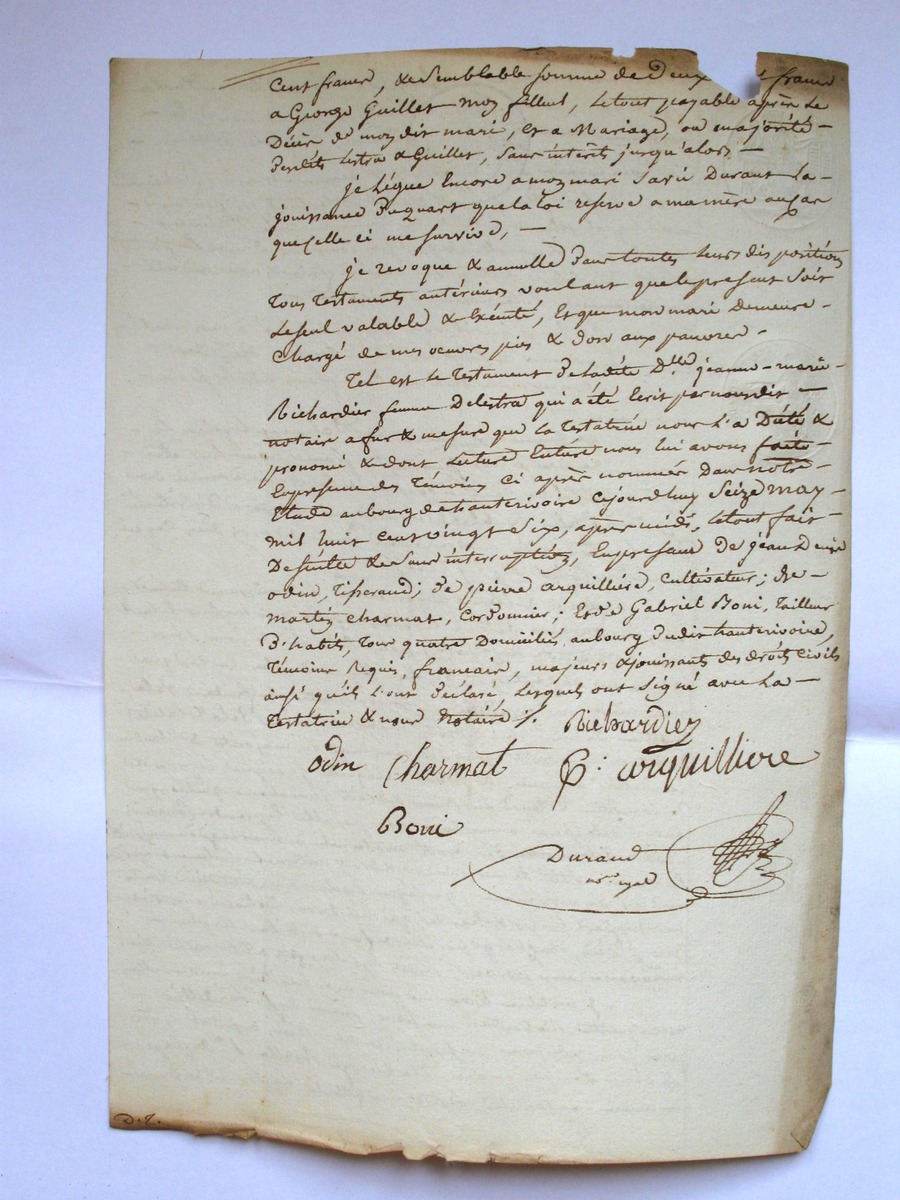 Cent francs, & Semblable somme de deux francs
a George Guillet moy filleul, le tout payable après le
Décès de moy dit mari, et a Mariage, ou majorité –
Desdits Lestra & Guillet, Sans intérêts jusqu'alors –
je Lègue Encore a moy mari Sa vie Durant La –
jouissance Du quart que la loi reserve a ma mère au cas
que celle ci me survive, –
je revoque & annulle Dans toutes leurs dispositions
Tous Testaments antérieurs voulant que le present Soit
Le seul valable & Exécuté, Et que mon mari Demeure –
Chargé de mes oeuvres pies & don aux pauvres –
Tel est le Testament De ladite Dlle jeanne-marie
Richardier femme Delestra qui a été Ecrit par nous dit –
notaire a fur & mesure que la Testatrice nous l'a Dicté &
prononcé & dont Lecture Entière nous lui avons faite
En presence des Témoins Ci après nommés Dans notre –
Etude au bourg de hauterivoire Cejourdhuy Seize may –
mil huit cent vingt Six, après midi, le tout fait –
De suitte & Sans interruption, En presence De jean Denis
odin, Tisserand; De pierre arquillière, Cultivateur; De –
martin Charmat, Cordonnier; Et De Gabriel Boni, Tailleur
D'habits, Tous quatre Domiciliés au bourg Dudit hauterivoire,
Témoins Requis, francais, majeurs & jouissants des droits Civils
ainsi qu'ils l'ont Déclaré, Lesquels ont Signé avec La –
Testatrice & nous Notaire ./.
Richardier
odin Charmat P: arquilliere
Boni
Durand
nore royal
D.T.